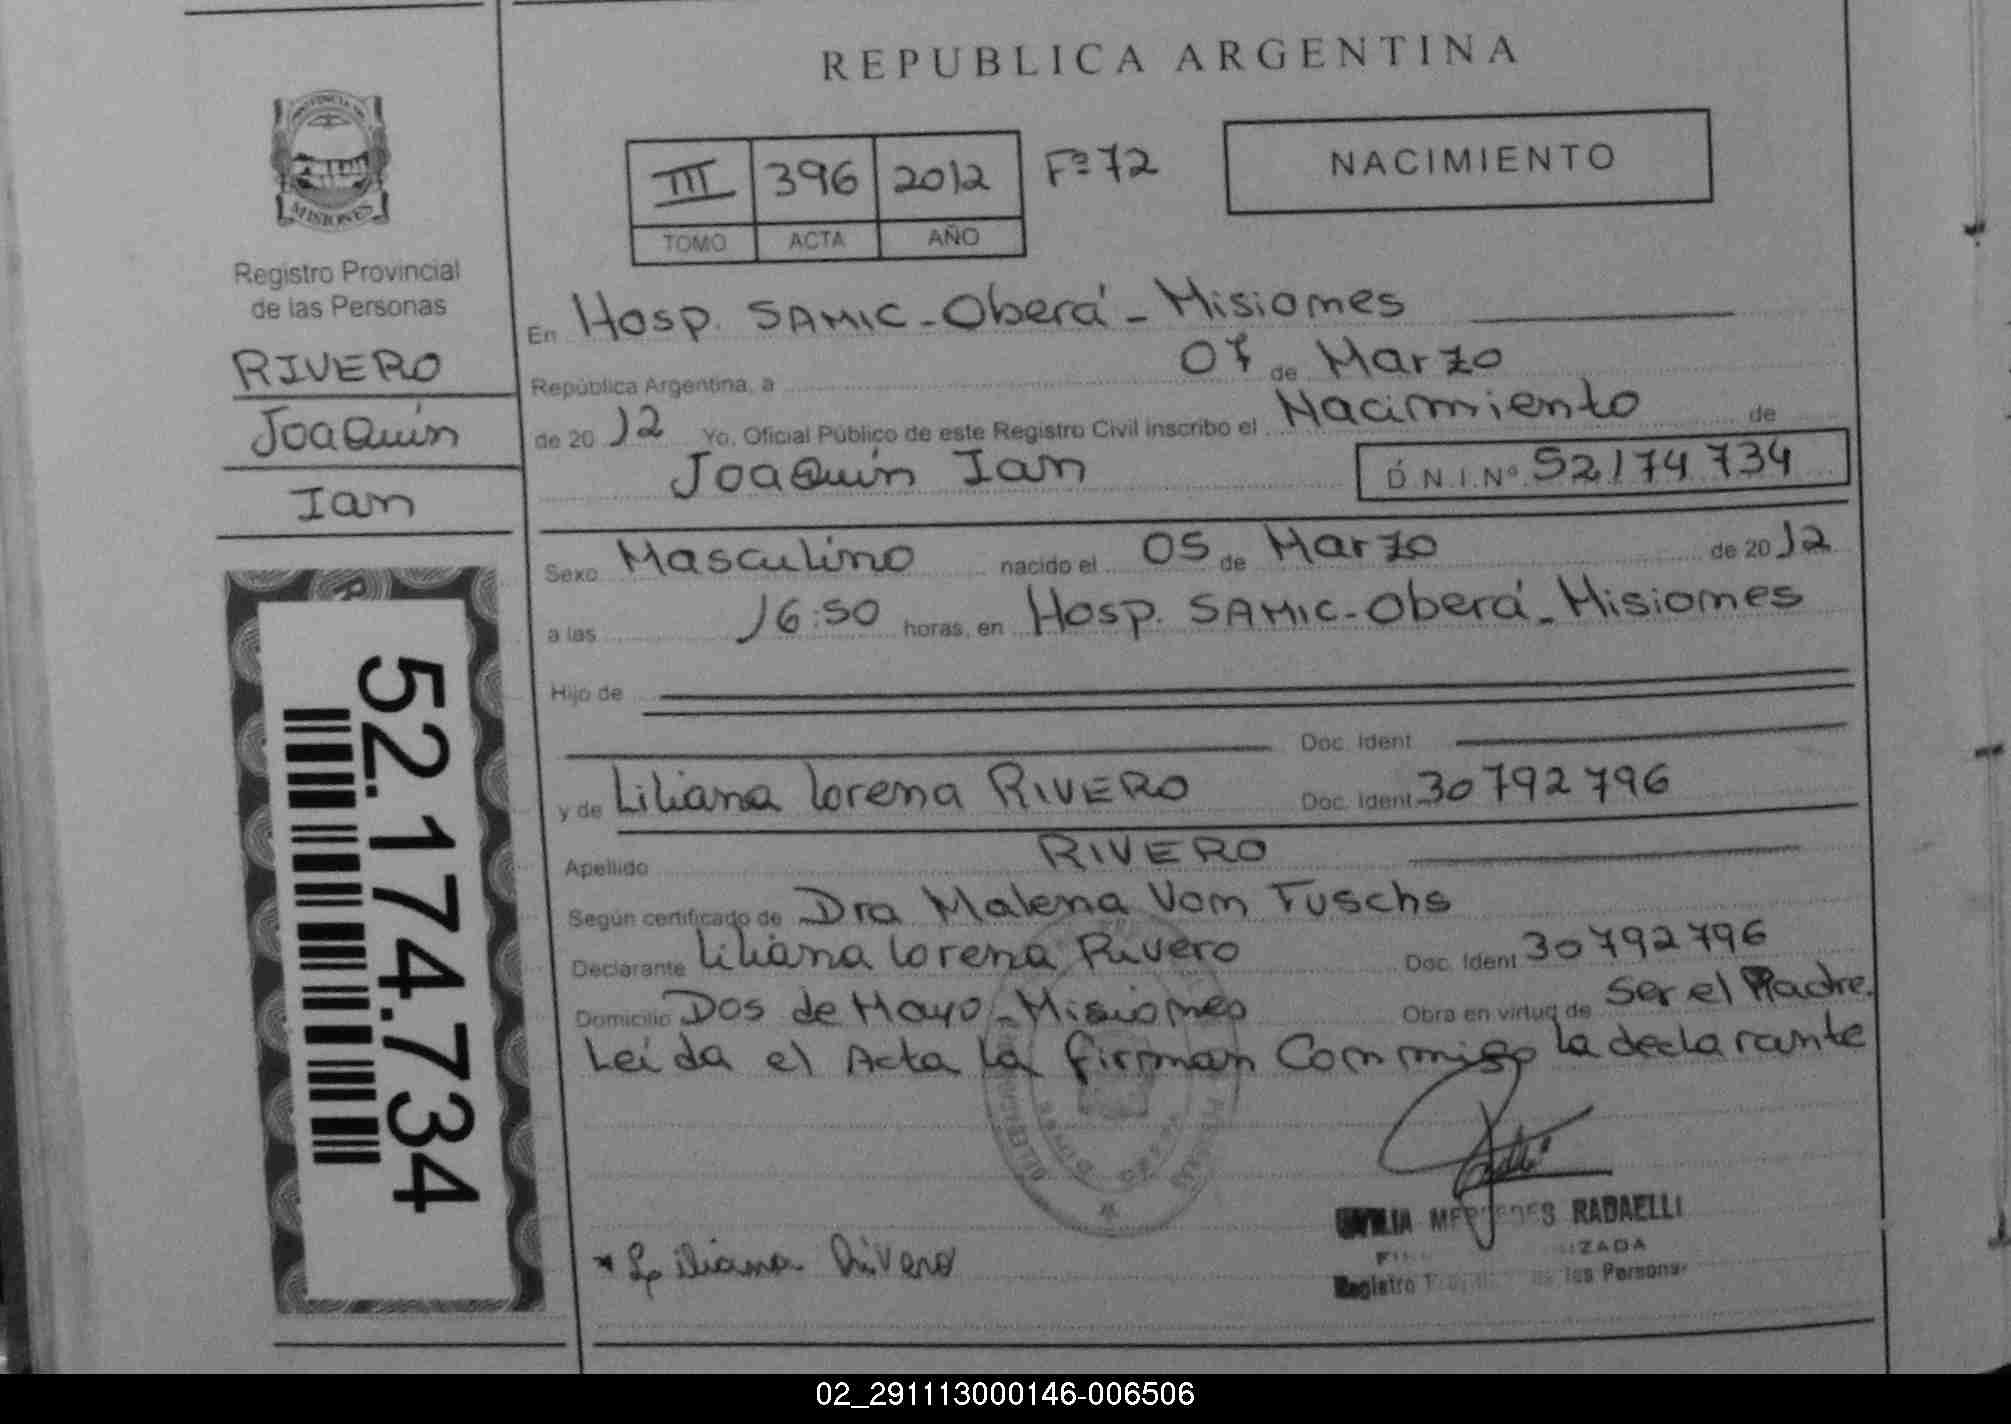 REPUBLICA ARGENTINA
PROVINCIA DE
MISIONES
Registro Provincial
de las Personas
RIVERO
Joaquín
Ian
52.174.734
III 396 2012 Fº 72
TOMO ACTA AÑO
NACIMIENTO
En Hosp. SAMIC - Oberá - Misiones
República Argentina, a 07 de Marzo
de 2012 Yo, Oficial Público de este Registro Civil inscribo el Nacimiento de
Joaquín Ian D.N.I.Nº 52174734
Sexo Masculino nacido el 05 de Marzo de 2012
a las 16:50 horas, en Hosp. SAMIC - Oberá - Misiones
Hijo de
Doc. Ident
y de Liliana Lorena RIVERO Doc. Ident 30792796
Apellido RIVERO
Según certificado de Dra Malena Von Fuschs
Declarante Liliana Lorena Rivero Doc. Ident 30792796
Domicilio Dos de Mayo - Misiones Obra en virtud de Ser el Madre.
Leída el Acta la firman Conmigo la declarante
* Liliana Rivero
MERCEDES RADAELLI
Registro las Personas
02_291113000146-006506